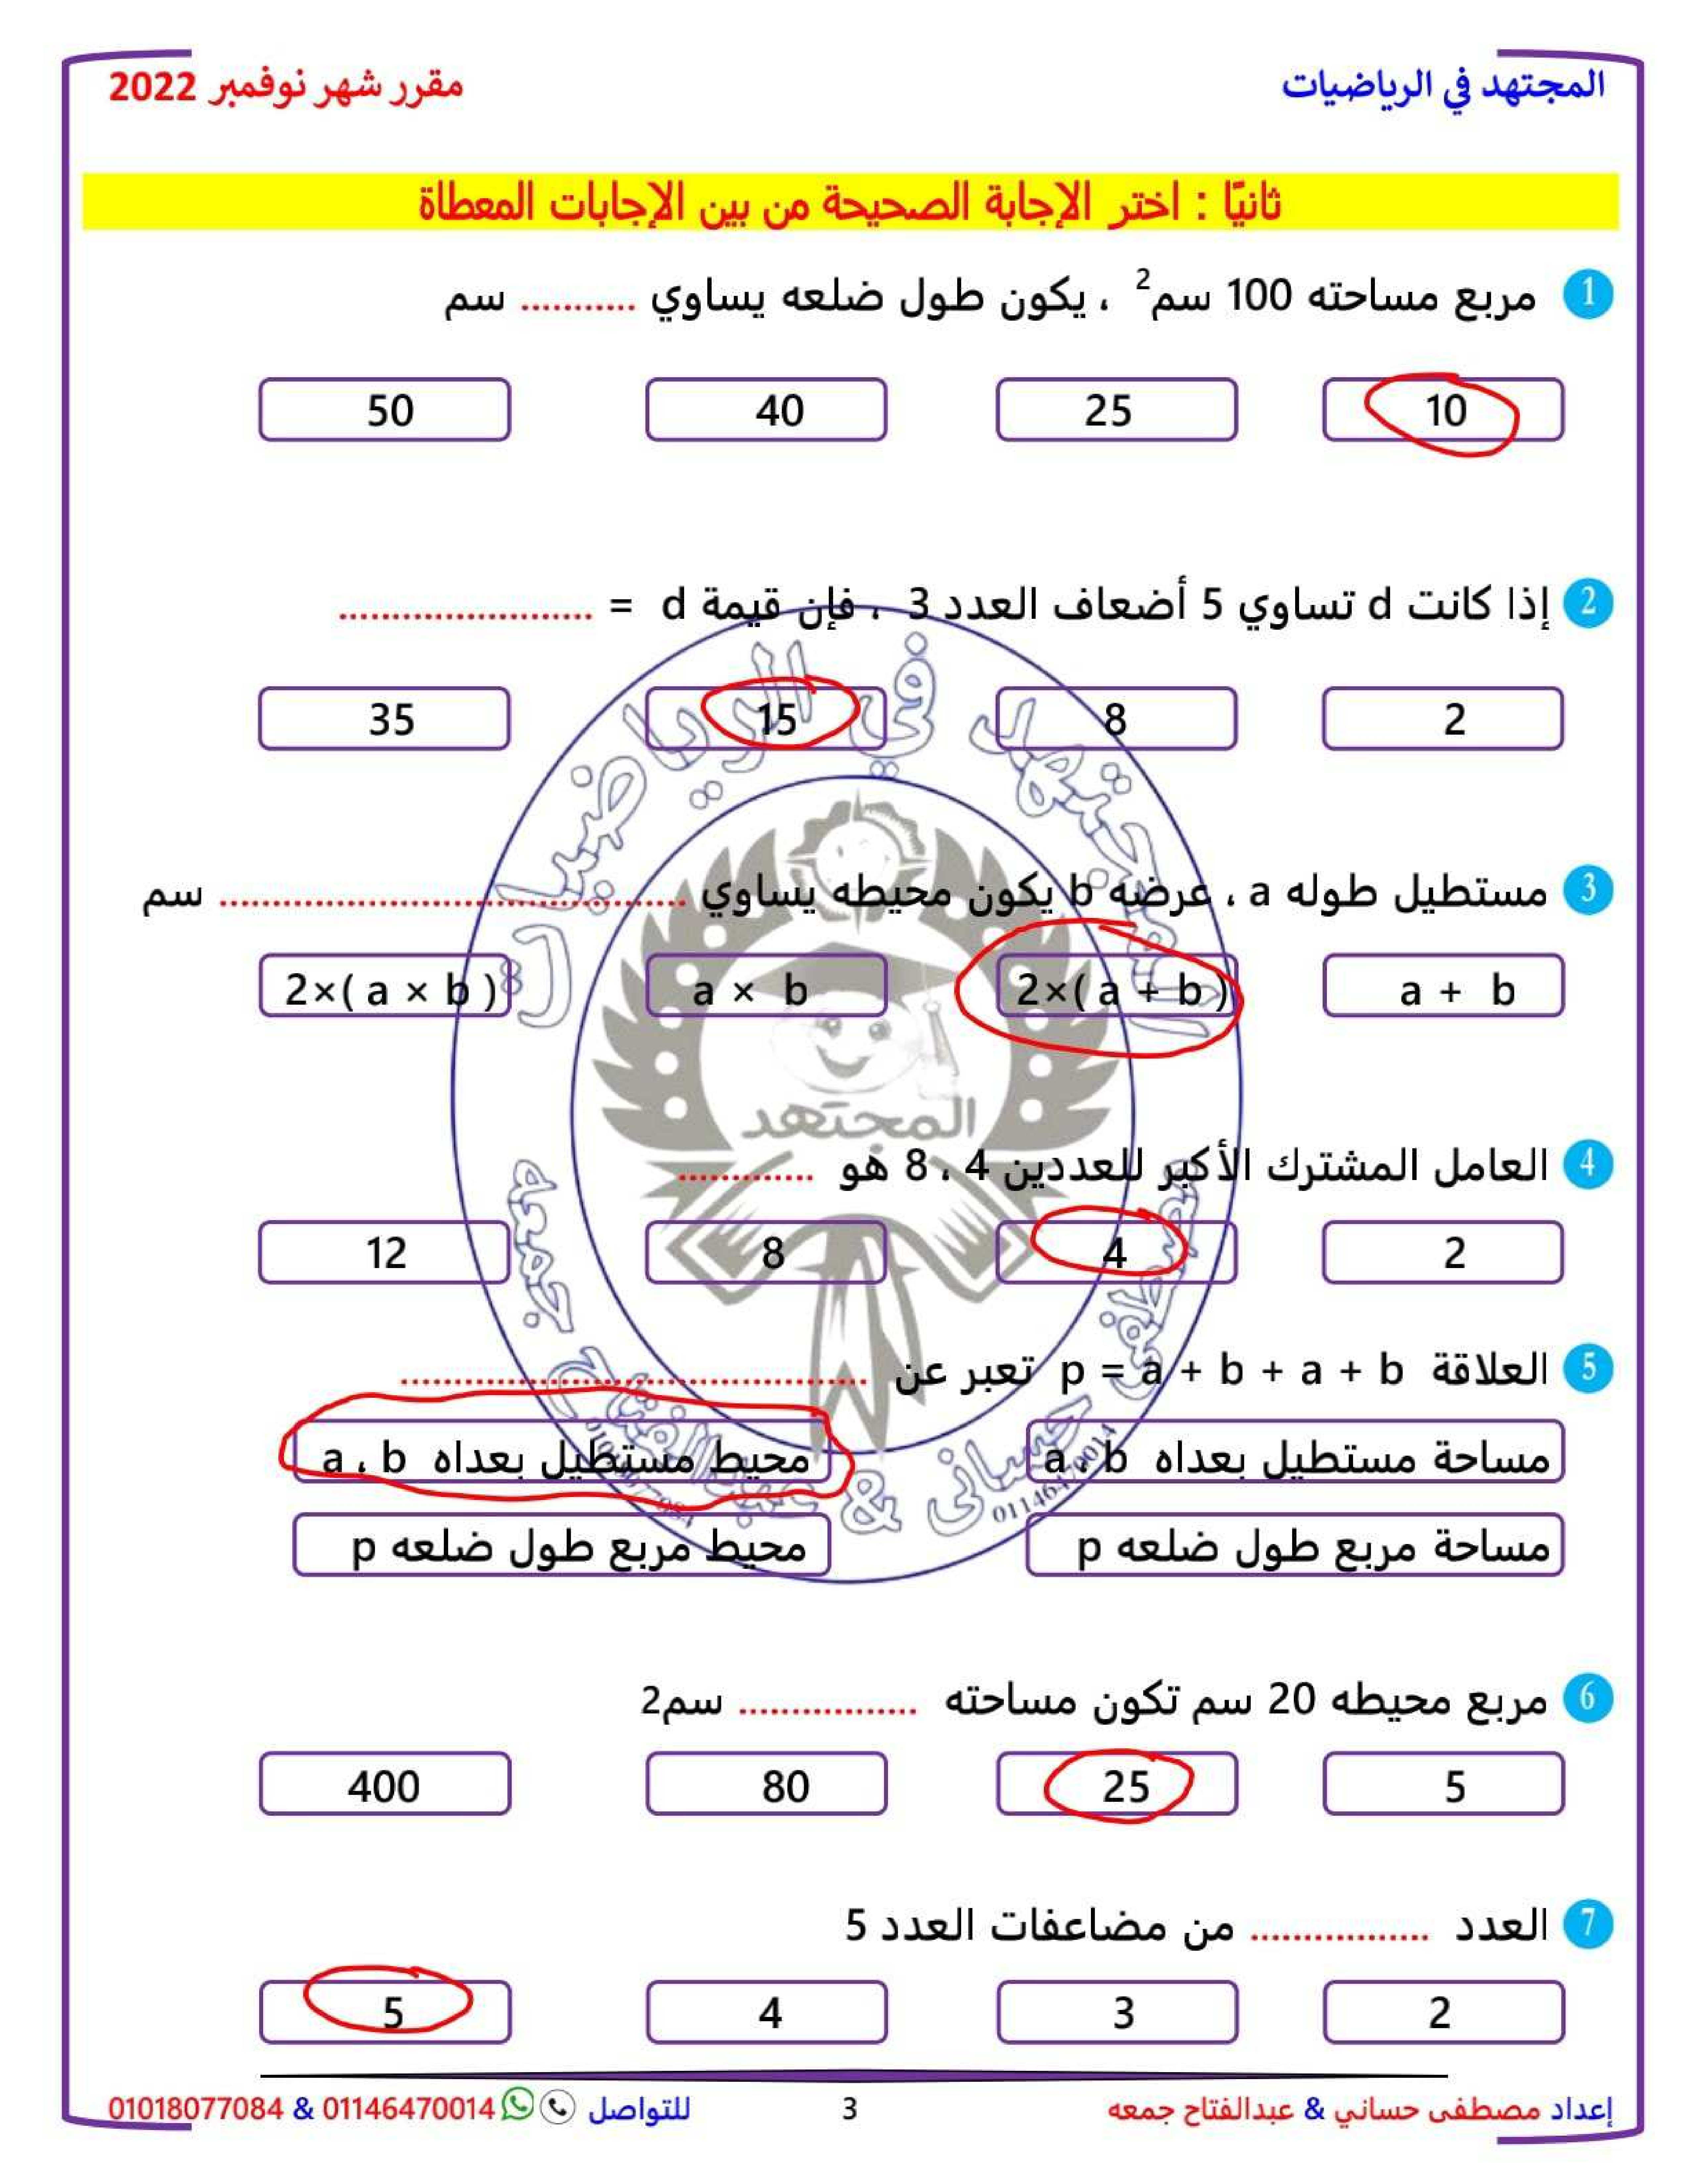 المجتهد في الرياضيات
مقرر شهر نوفمبر 2022
ثانيًا : اختر الإجابة الصحيحة من بين الإجابات المعطاة
1 مربع مساحته 100 سم² ، يكون طول ضلعه يساوي ........... سم
10 25 40 50
2 إذا كانت d تساوي 5 أضعاف العدد 3 ، فإن قيمة d = ........................
2 8 15 35
3 مستطيل طوله a ، عرضه b يكون محيطه يساوي ............................................. سم
a + b 2×( a + b ) a × b 2×( a × b )
4 العامل المشترك الأكبر للعددين 4 ، 8 هو .............
2 4 8 12
5 العلاقة p = a + b + a + b تعبر عن .............................................
مساحة مستطيل بعداه a ، b محيط مستطيل بعداه a ، b
مساحة مربع طول ضلعه p محيط مربع طول ضلعه p
6 مربع محيطه 20 سم تكون مساحته ................. سم2
5 25 80 400
7 العدد ................. من مضاعفات العدد 5
2 3 4 5
المجتهد في الرياضيات
المجتهد
مصطفى حسانى & عبدالفتاح جمعه
01146470014
01018077084
إعداد مصطفى حساني & عبدالفتاح جمعه
3
للتواصل 01146470014 & 01018077084